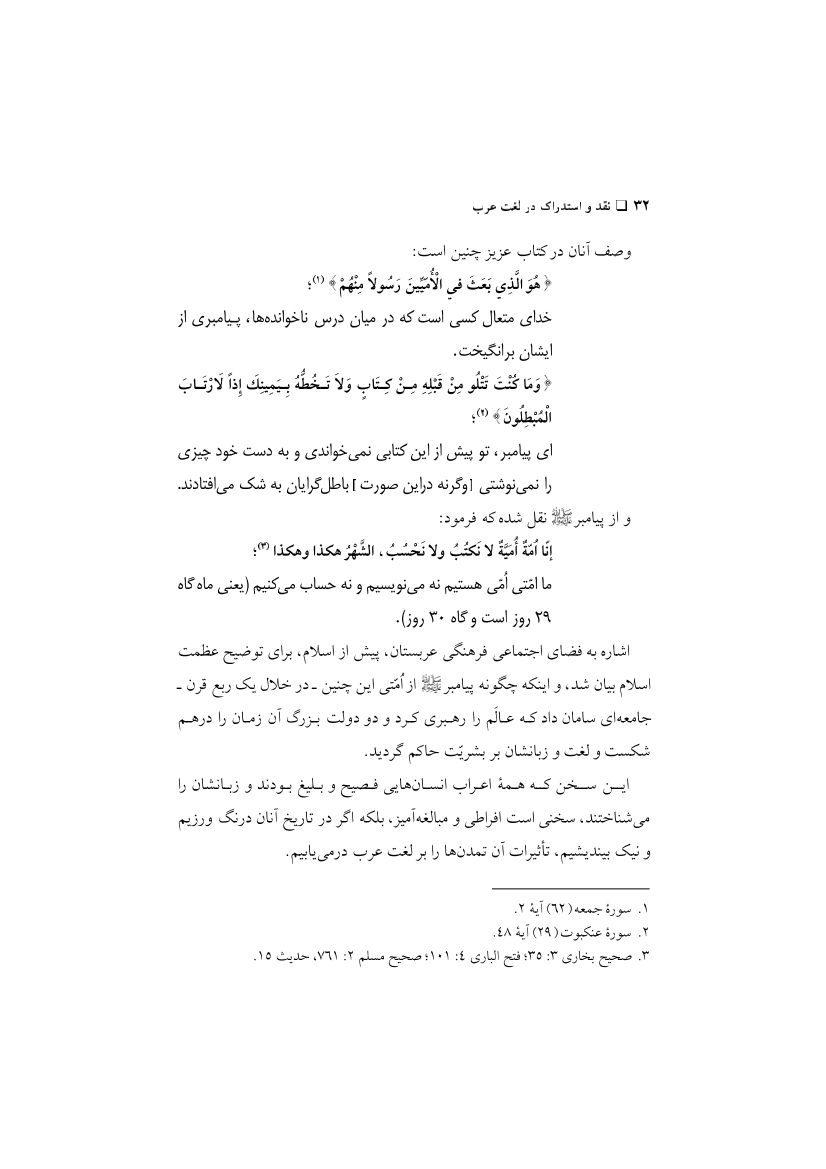 ۳۲ ❑ نقد و استدراک در لغت عرب
وصف آنان در کتاب عزیز چنین است:
﴿هُوَ الَّذِي بَعَثَ في الْأُمّيِّينَ رَسُولاً مِنْهُمْ﴾ (۱)؛
خدای متعال کسی است که در میان درس ناخوانده‌ها، پـیامبری از
ایشان برانگیخت.
﴿وَمَا كُنْتَ تَتْلُو مِنْ قَبْلِهِ مِـنْ كِـتَابٍ وَلاَ تَـخُطُّهُ بِـيَمِينِكَ إِذاً لَارْتَـابَ
الْمُبْطِلُونَ﴾ (۲)؛
ای پیامبر، تو پیش از این کتابی نمی‌خواندی و به دست خود چیزی
را نمی‌نوشتی [وگرنه دراین صورت] باطل‌گرایان به شک می‌افتادند.
و از پیامبر ﷺ نقل شده که فرمود:
إنّا اُمّةٌ أُمّيَّةٌ لا نَكتُبُ ولا نَحْسُبُ، الشَّهْرُ هكذا وهكذا (۳)؛
ما امّتی اُمّی هستیم نه می‌نویسیم و نه حساب می‌کنیم (یعنی ماه گاه
۲۹ روز است و گاه ۳۰ روز).
اشاره به فضای اجتماعی فرهنگی عربستان، پیش از اسلام، برای توضیح عظمت
اسلام بیان شد، و اینکه چگونه پیامبر ﷺ از اُمّتی این چنین ـ در خلال یک ربع قرن ـ
جامعه‌ای سامان داد کـه عـالَم را رهـبری کـرد و دو دولت بـزرگ آن زمـان را درهـم
شکست و لغت و زبانشان بر بشریّت حاکم گردید.
ایـن سـخن کـه هـمهٔ اعـراب انسـان‌هایی فـصیح و بـلیغ بـودند و زبـانشان را
می‌شناختند، سخنی است افراطی و مبالغه‌آمیز، بلکه اگر در تاریخ آنان درنگ ورزیم
و نیک بیندیشیم، تأثیرات آن تمدن‌ها را بر لغت عرب درمی‌یابیم.
۱. سورهٔ جمعه (٦٢) آیهٔ ۲.
۲. سورهٔ عنکبوت (۲۹) آیهٔ ٤٨.
۳. صحیح بخاری ۳: ۳۵؛ فتح الباری ٤: ۱۰۱؛ صحیح مسلم ۲: ۷٦۱، حدیث ۱۵.